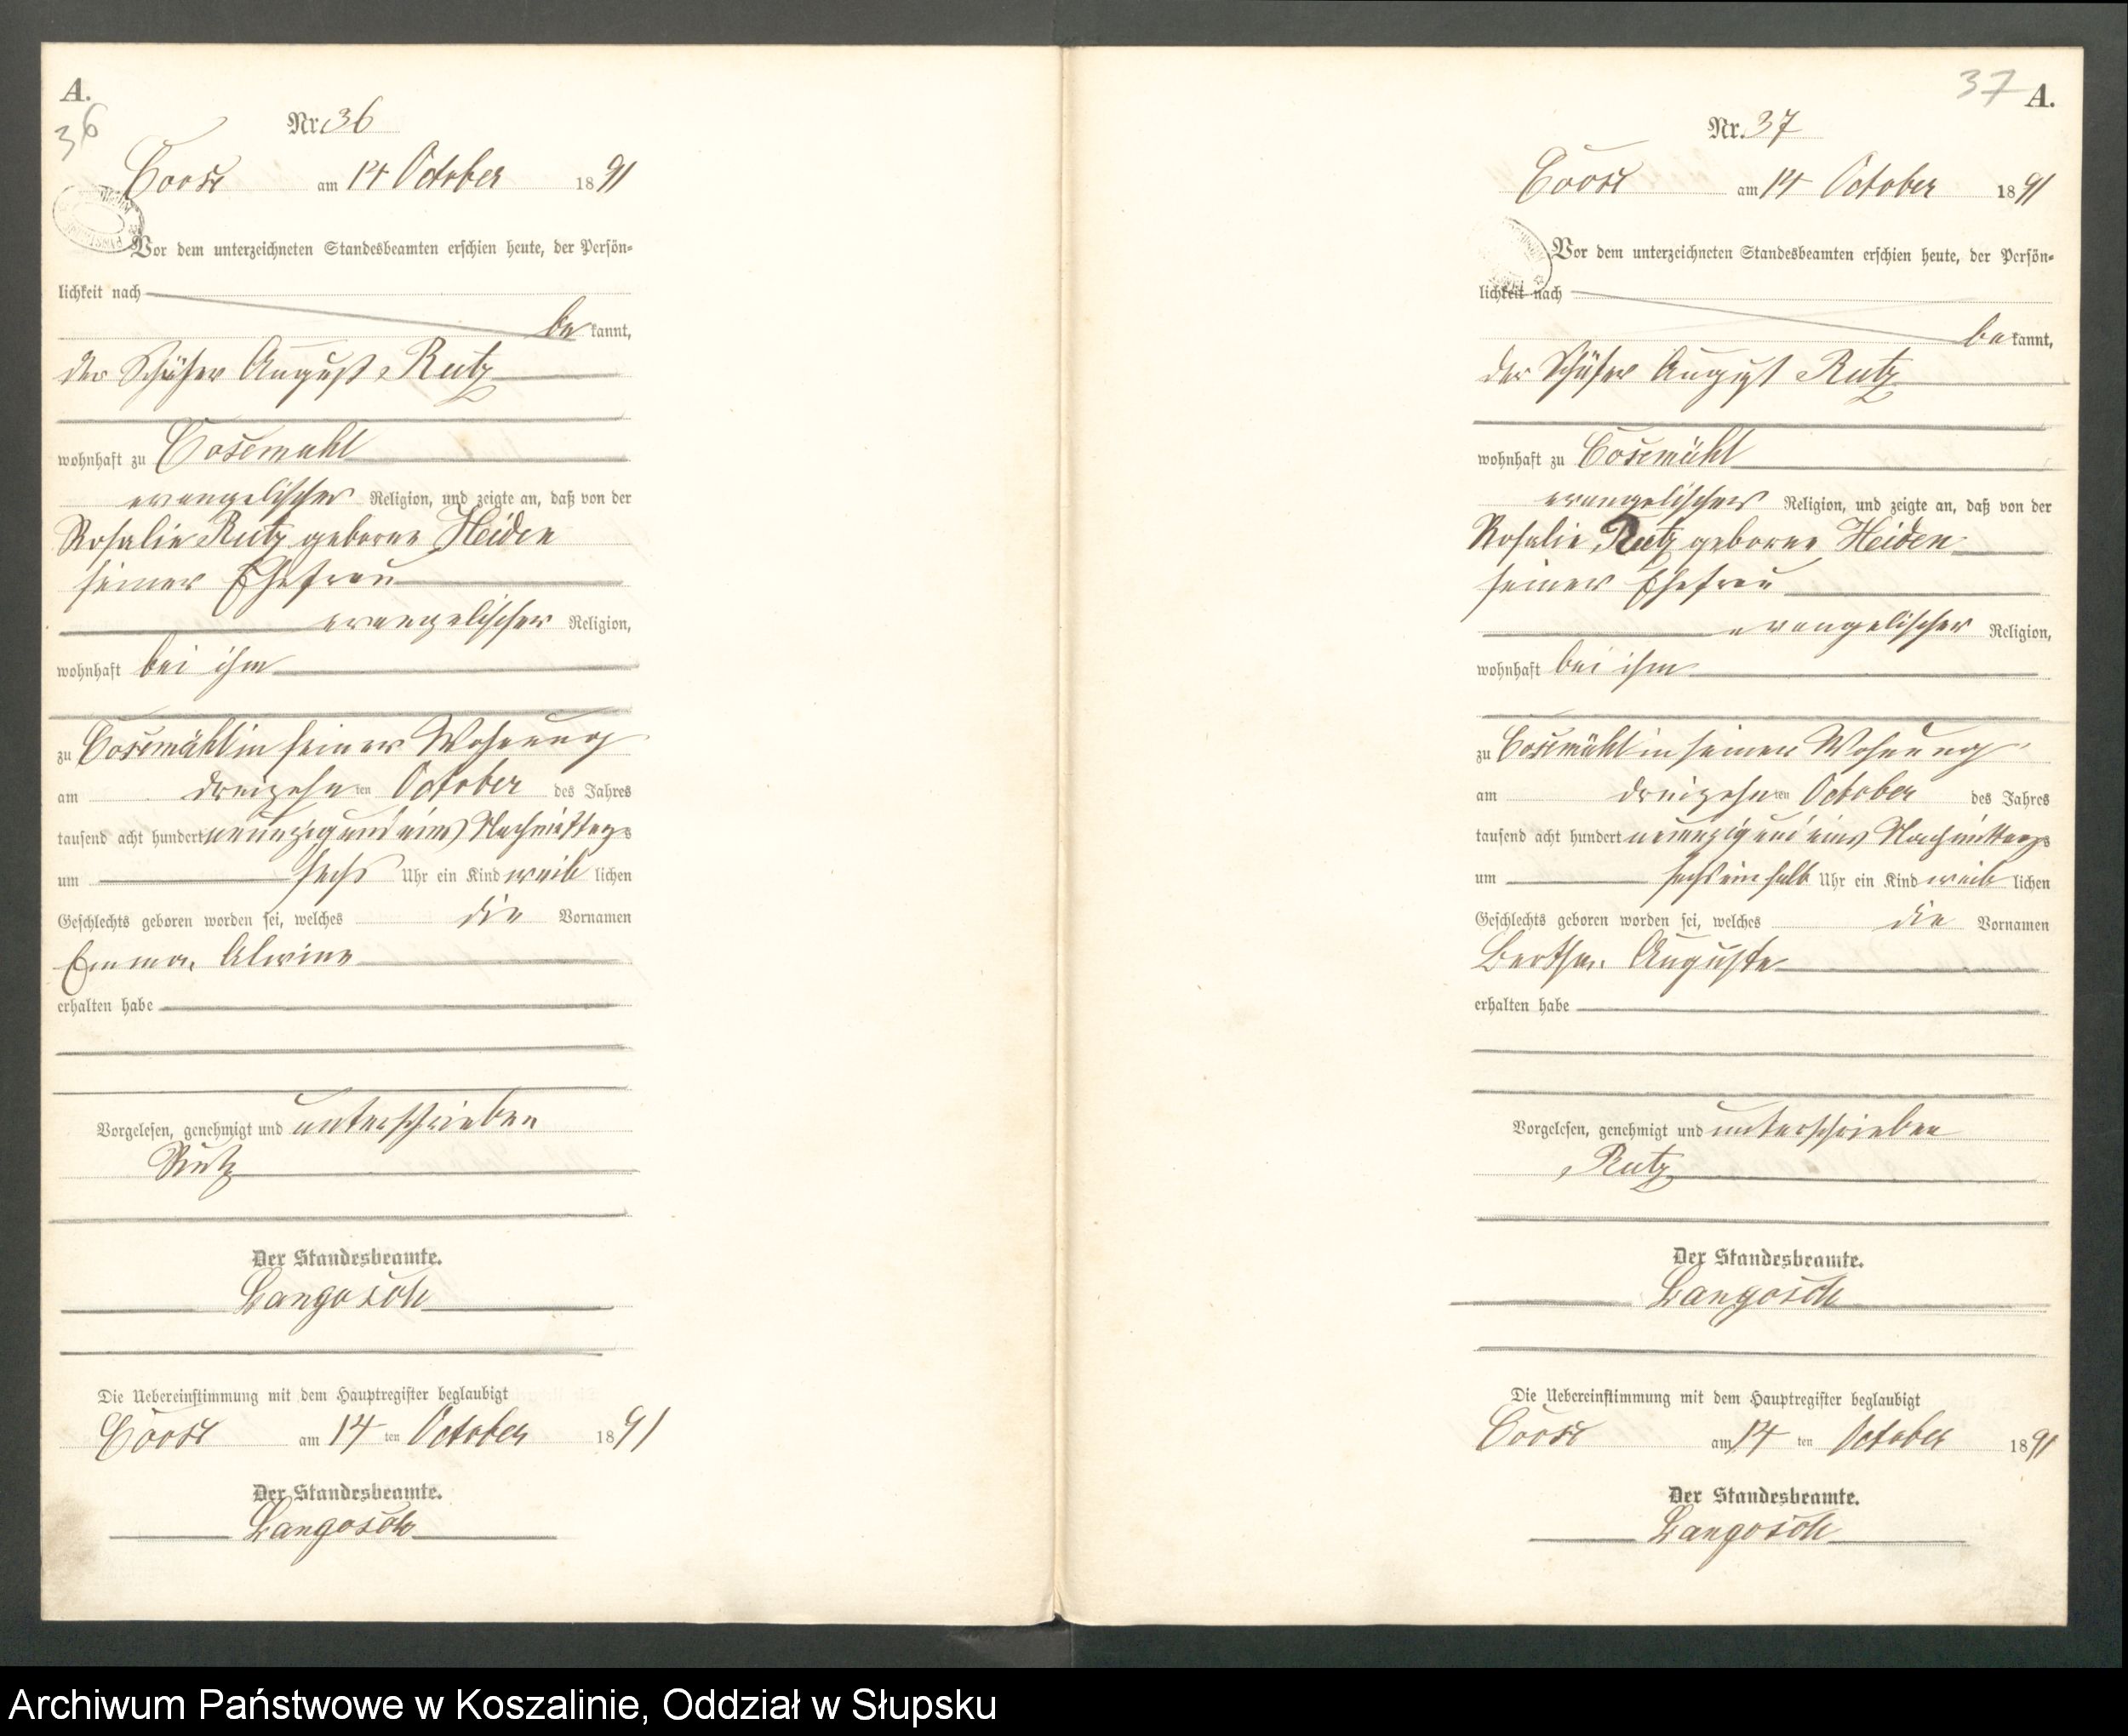 A.
36
Nr. 36
Coose am 14 October 1891
Vor dem unterzeichneten Standesbeamten erschien heute, der Persön-
lichkeit nach
be kannt,
der Schäfer August Rutz
wohnhaft zu Cosemühl
evangelischer Religion, und zeigte an, daß von der
Rosalie Rutz geborne Heiden
seiner Ehefrau
evangelischer Religion,
wohnhaft bei ihm
zu Cosemühl in seiner Wohnung
am dreizehn ten October des Jahres
tausend acht hundert neunzig und eins Nachmittags
um sechs Uhr ein Kind weib lichen
Geschlechts geboren worden sei, welches die Vornamen
Emma, Alwine
erhalten habe
Vorgelesen, genehmigt und unterschrieben
Rutz
Der Standesbeamte.
Langosch
Die Uebereinstimmung mit dem Hauptregister beglaubigt
Coose am 14 ten October 1891
Der Standesbeamte.
Langosch
37 A.
Nr. 37
Coose am 14 October 1891
Vor dem unterzeichneten Standesbeamten erschien heute, der Persön-
lichkeit nach
be kannt,
der Schäfer August Rutz
wohnhaft zu Cosemühl
evangelischer Religion, und zeigte an, daß von der
Rosalie Rutz geborne Heiden
seiner Ehefrau
evangelischer Religion,
wohnhaft bei ihm
zu Cosemühl in seiner Wohnung
am dreizehn ten October des Jahres
tausend acht hundert neunzig und eins Nachmittags
um sechs ein halb Uhr ein Kind weib lichen
Geschlechts geboren worden sei, welches die Vornamen
Bertha, Auguste
erhalten habe
Vorgelesen, genehmigt und unterschrieben
Rutz
Der Standesbeamte.
Langosch
Die Uebereinstimmung mit dem Hauptregister beglaubigt
Coose am 14 ten October 1891
Der Standesbeamte.
Langosch
Archiwum Państwowe w Koszalinie, Oddział w Słupsku